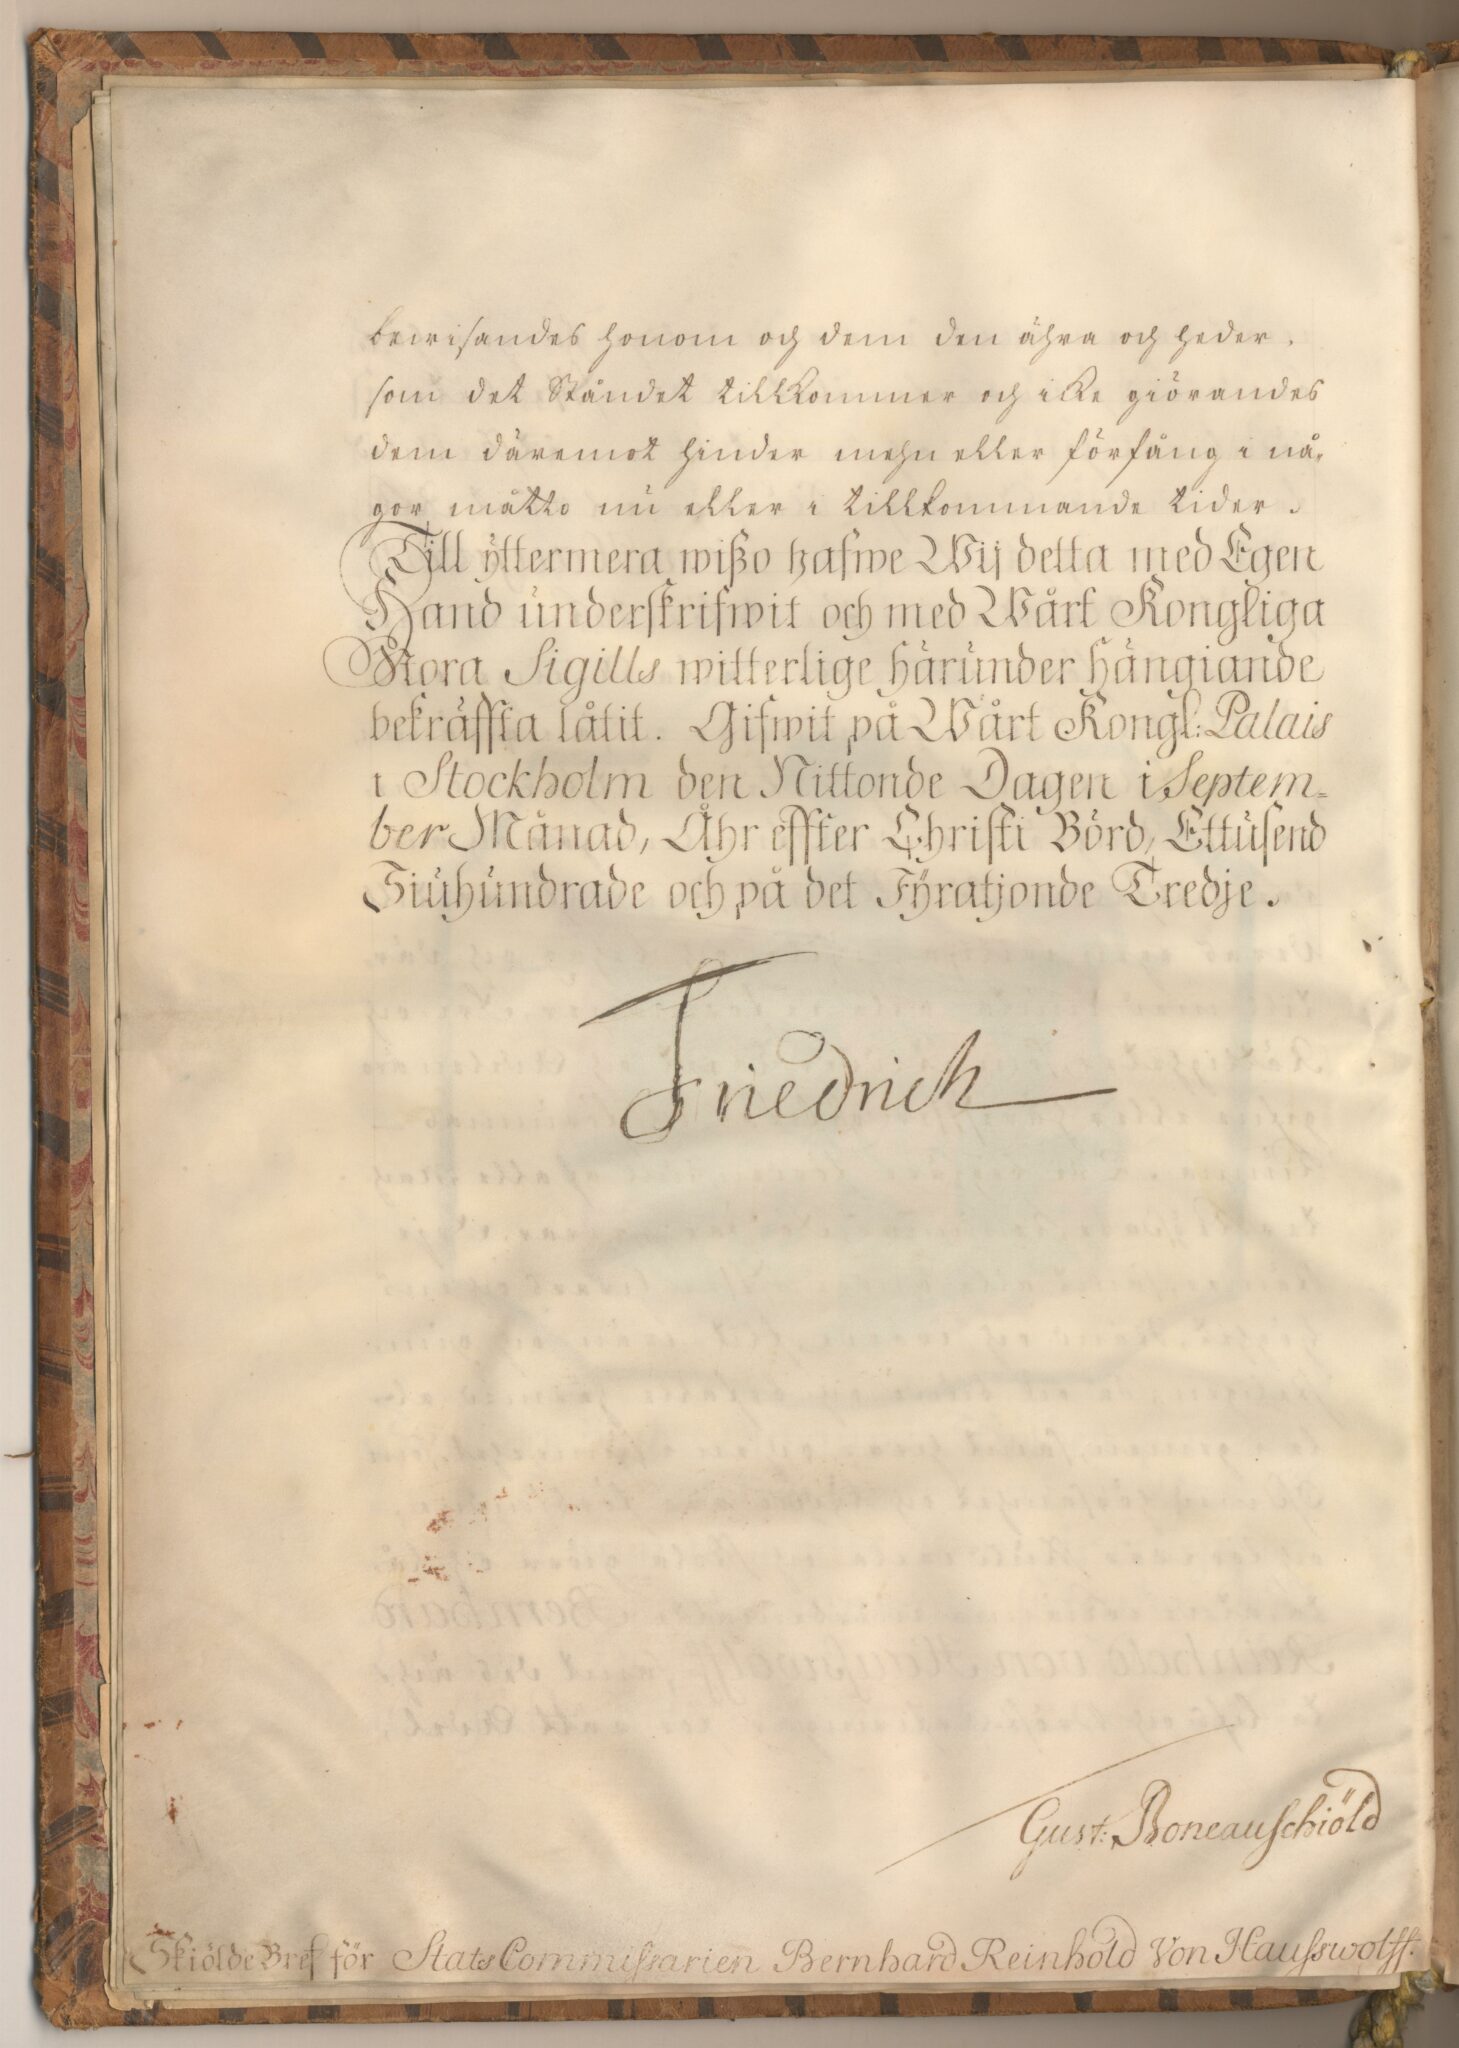 bewisandes honom och dem den ähra och heder,
som det Ståndet tillkommer och icke giörandes
dem däremot hinder mehn eller förfång i nå-
gor måtto nu eller i tillkommande tider.
Till ÿttermera wißo hafwe Wij detta med Egen
Hand underskrifwit och med Wårt Kongliga
Stora Sigills witterlige härunder hängiande
bekräffta låtit. Gifwit på Wårt Kongl: Palais
i Stockholm den Nittonde Dagen i Septem-
ber Månad, Åhr effter Christi Börd, Ettusend
Siuhundrade och på det Fÿratjonde Tredje.
Friedrich
Gust: Boneauschiöld
Skiölde Bref för Stats Commissarien Bernhard Reinhold Von Hausswolff.